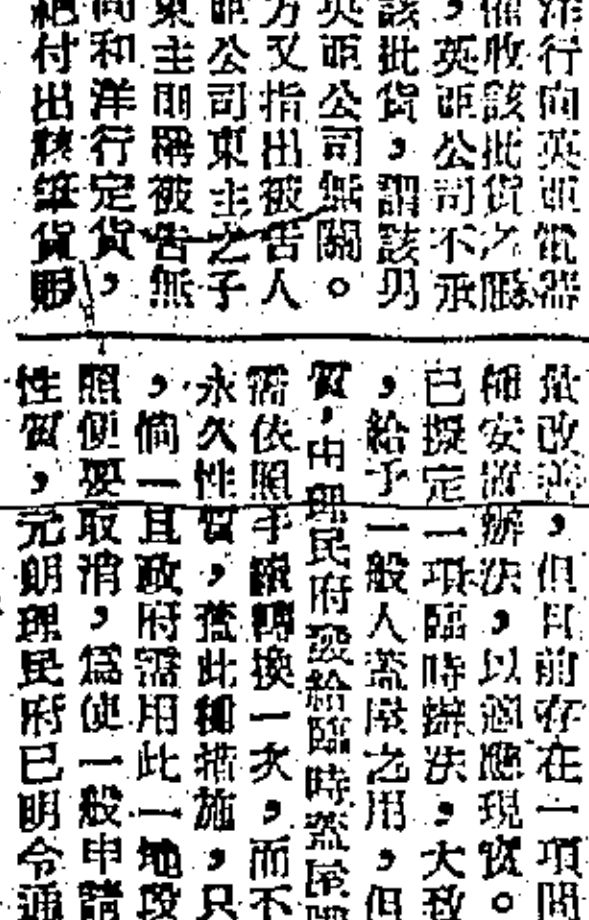 洋行向英亞電器
催收該批貨之賬
，英亞公司不承
該批貨，謂該男
英亞公司無關。
方又指出被告人
亞公司東主之子
東主則稱被告無
向和洋行定貨，
絕付出該筆貨賬
量改善，但目前存在一項問
種安置辦法，以適應現實。
已擬定一項臨時辦法，大致
，給予一般人蓋屋之用，但
質，由理民府發給臨時蓋屋
需依照手續轉換一次，而不
永久性質，蓋此種措施，只
，倘一旦政府需用此一地段
照便要取消，為使一般申請
性質，元朗理民府已明令通